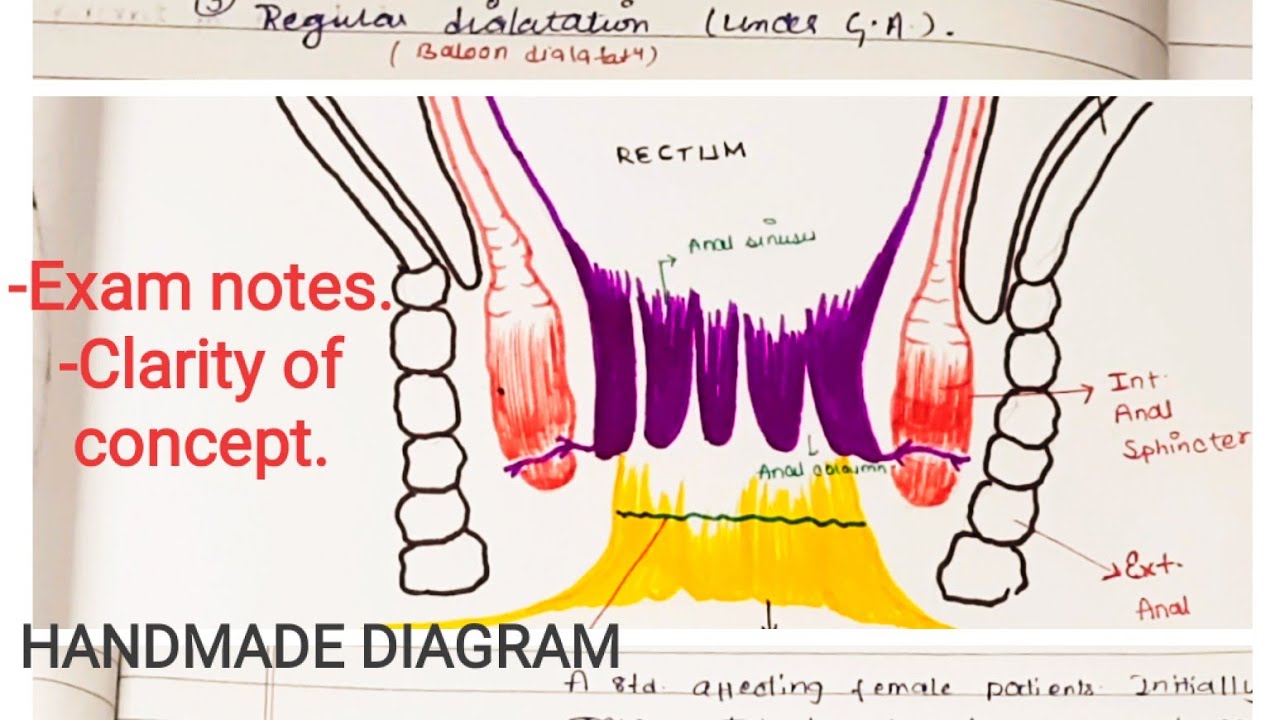 ③ Regular dialatation (under G.A.).
(Baloon dialatat4)
RECTUM
Anal sinuses
-Exam notes.
-Clarity of
concept.
Int.
Anal
Sphincter
Anal coloumn
Ext.
Anal
HANDMADE DIAGRAM
A std. affecting female patients. Initially